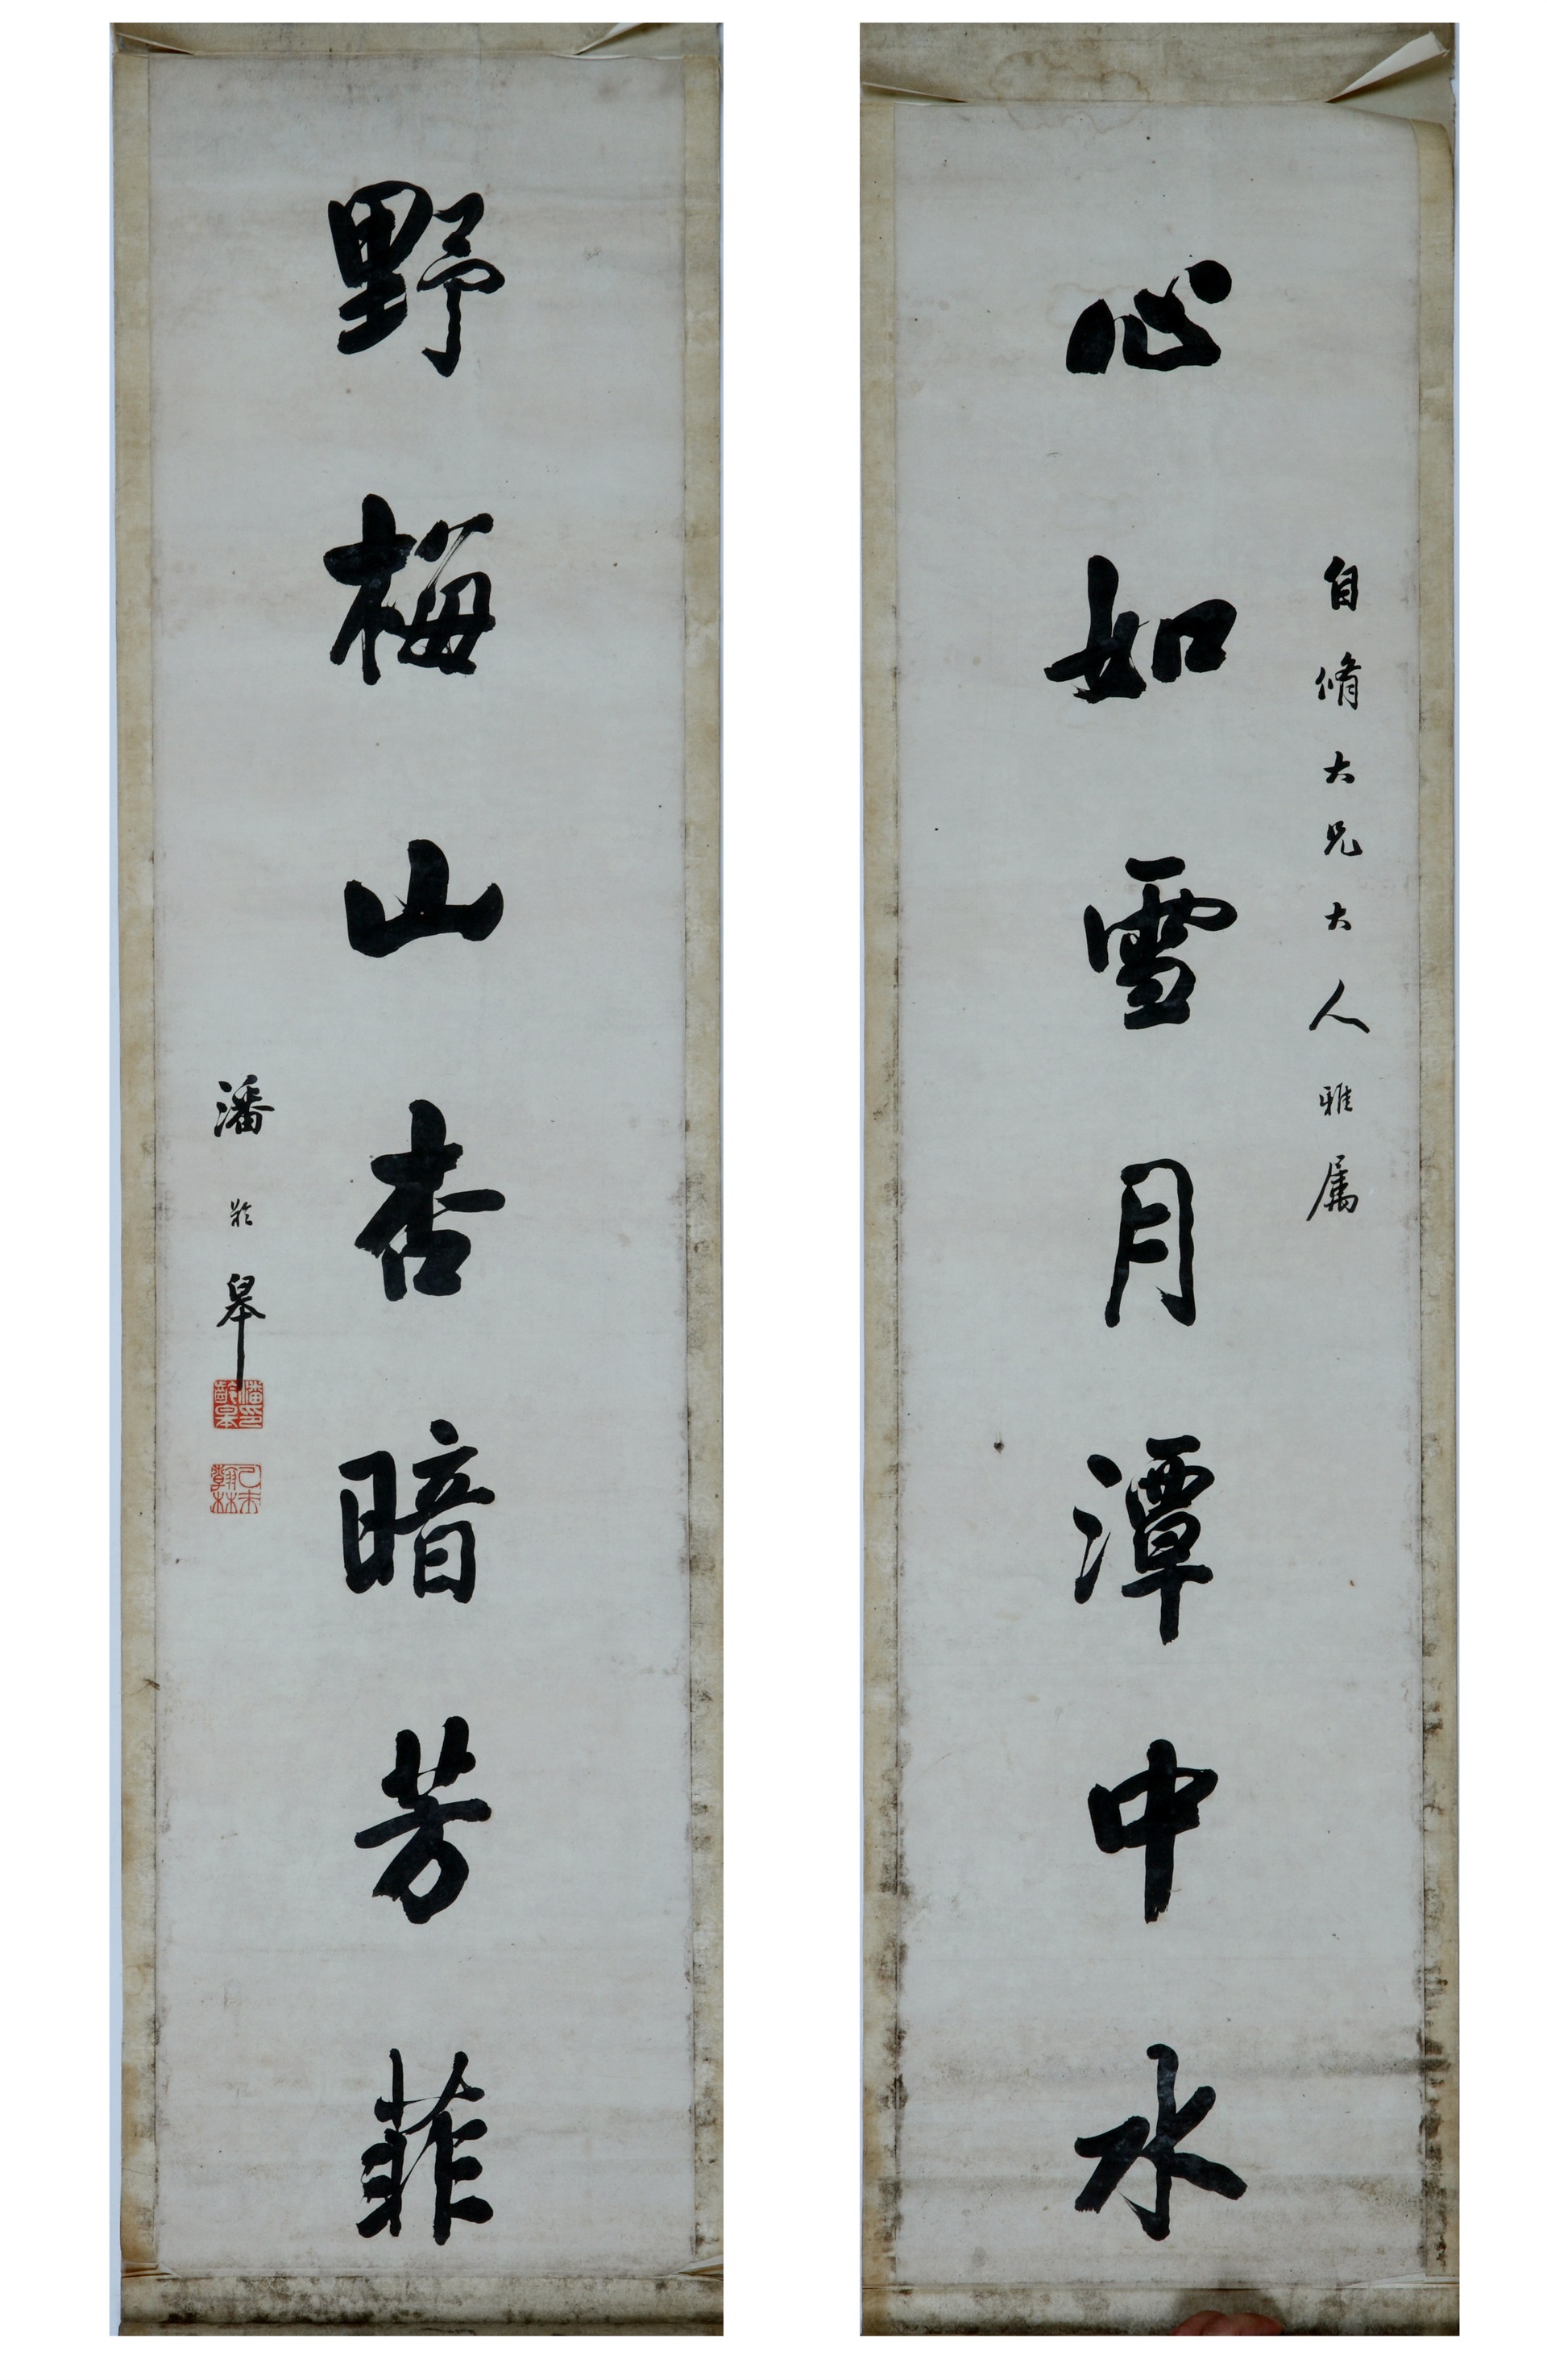 自脩大兄大人雅属
心如雪月潭中水
野梅山杏暗芳菲
潘龄皋
潘龄皋印
己未翰林